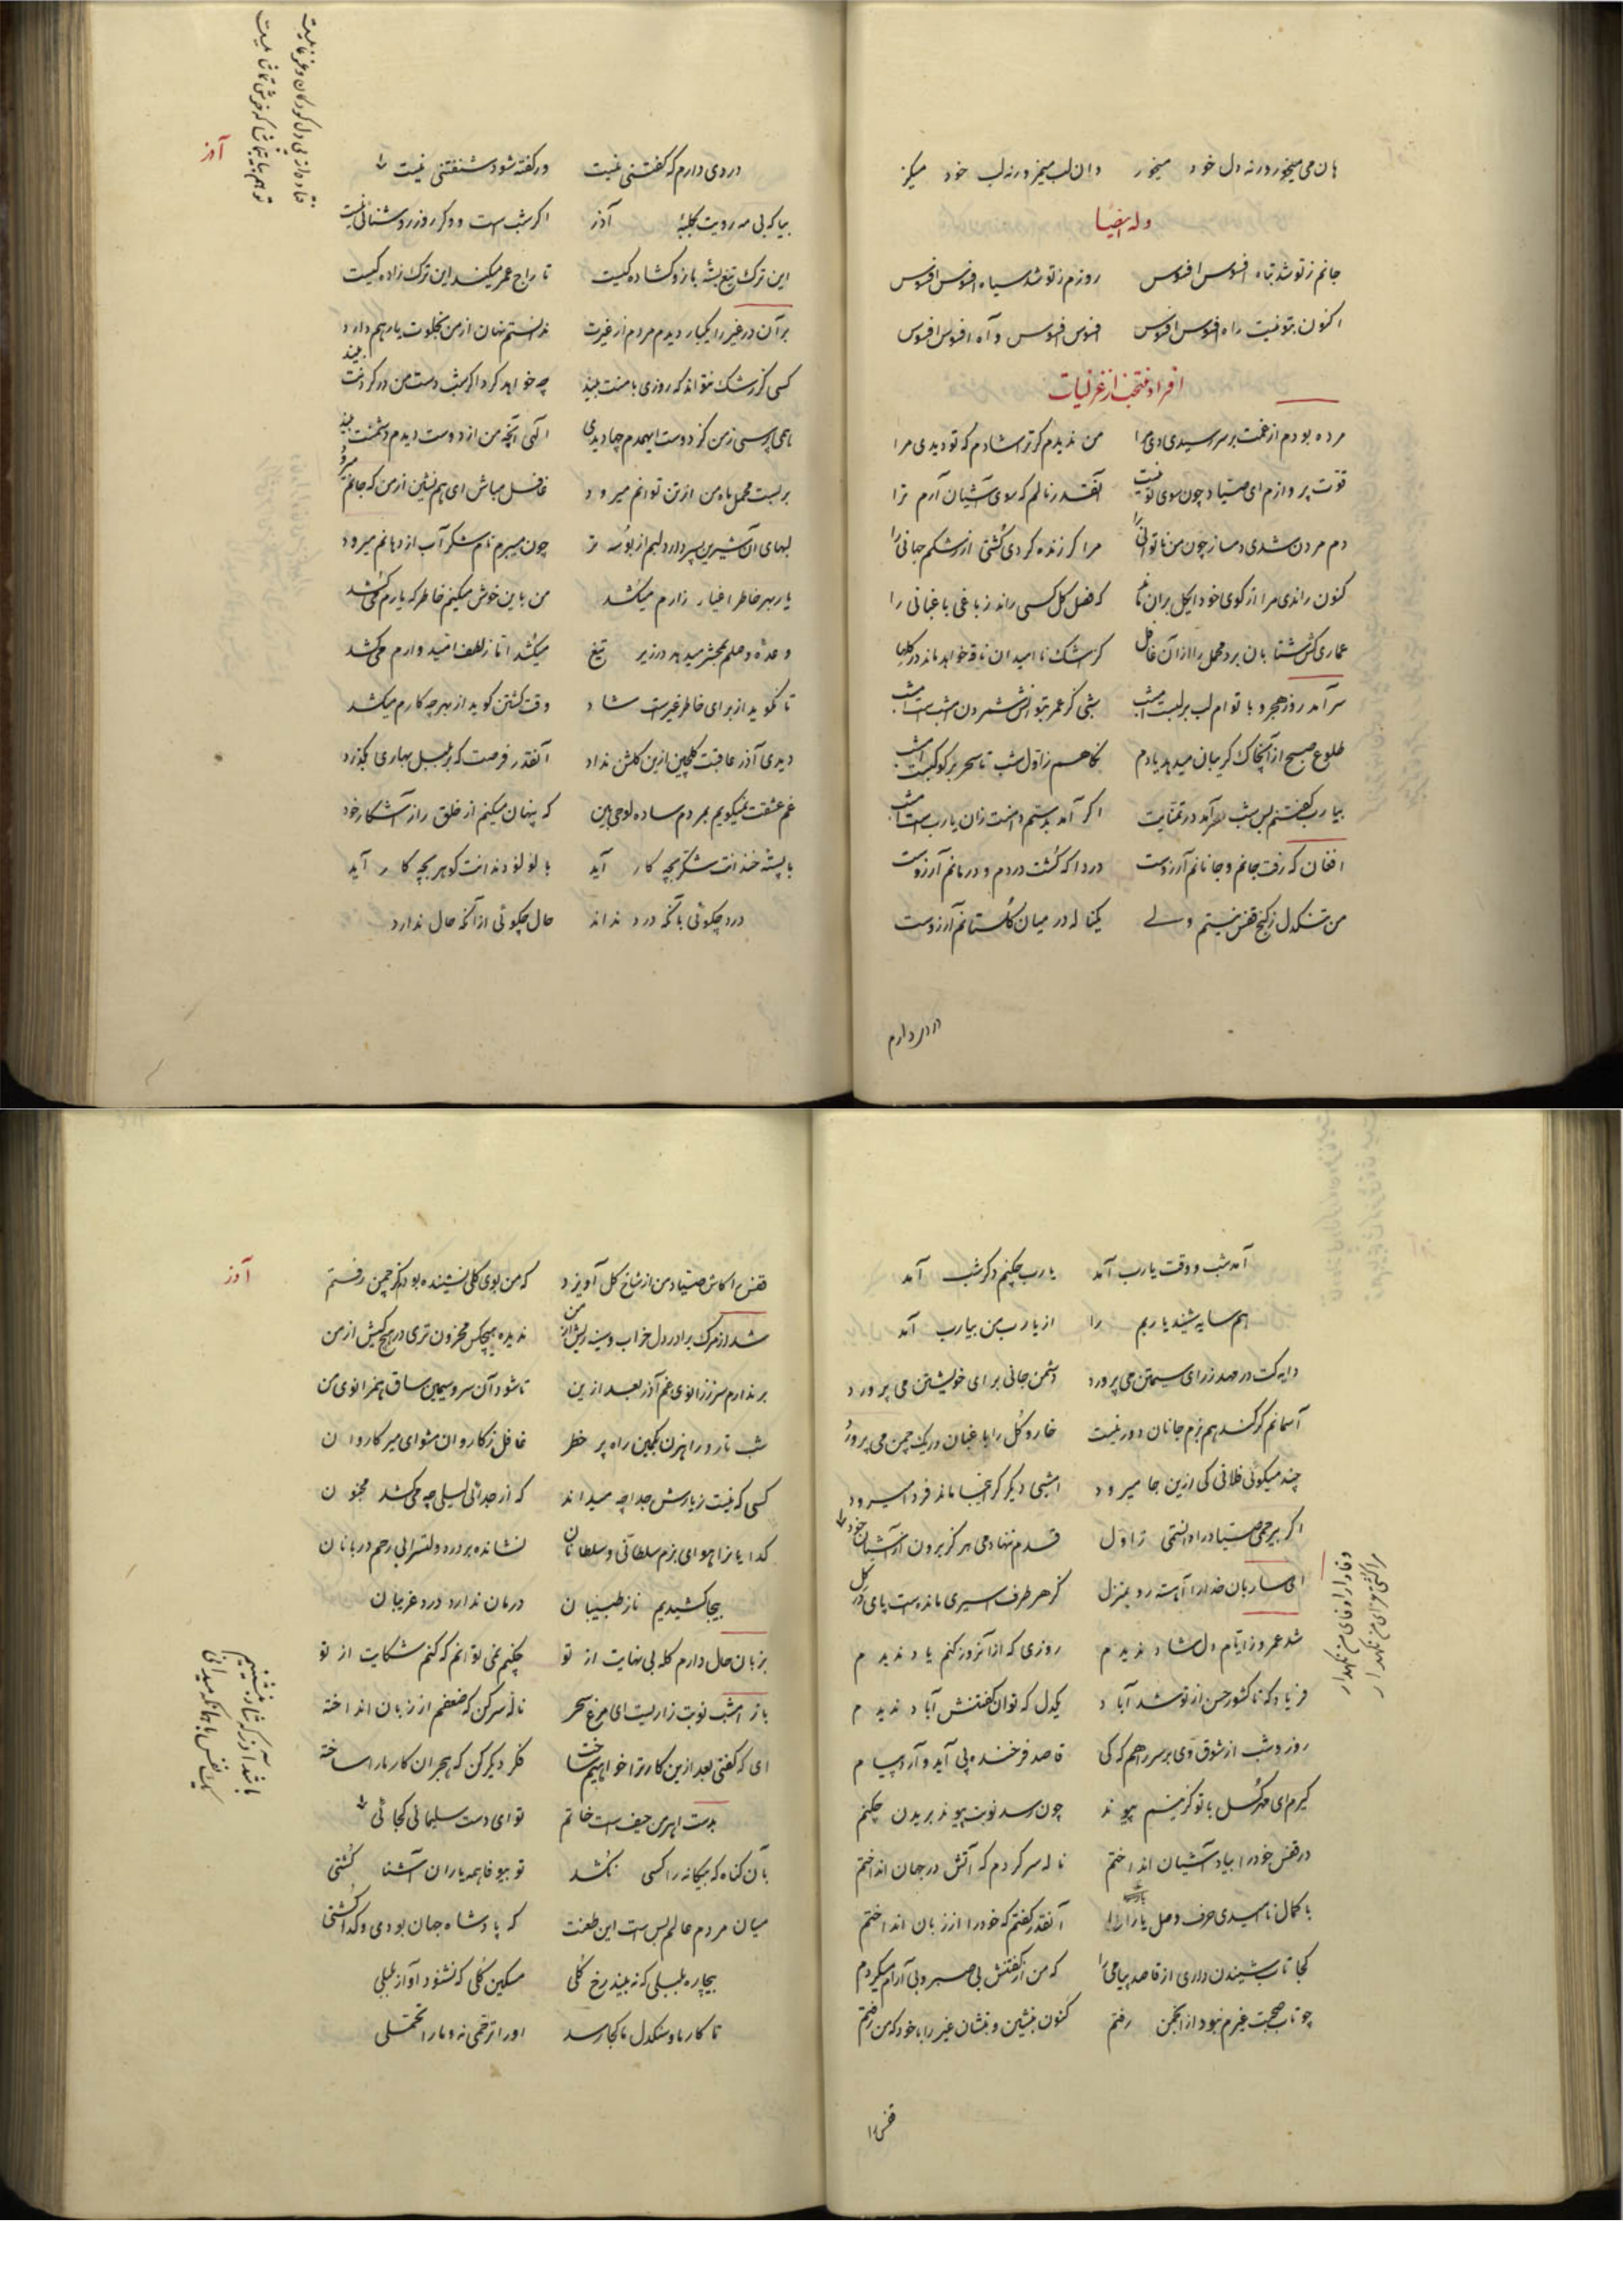 هان می میخور ورنه دل خود میخور وان لب میمز ورنه لب خود میگز
وله ایضا
جانم ز تو شد تباه افسوس افسوس روزم ز تو شد سیاه افسوس افسوس
اکنون بتو نیست راه افسوس افسوس افسوس افسوس و آه افسوس افسوس
افراد منتخب از غزلیات
مرده بودم از غمت بر سر رسیدی دی مرا من ندیدم گر ترا شادم که تو دیدی مرا
قوت پروازم ای صیاد چون سوی تو نیست آنقدر نالم که سوی آشیان آرم ترا
دم مردن شدی دمساز چون من ناتوانی را مرا گر زنده کردی کشتی از رشکم جهانی را
کنون راندی مرا از کوی خود ای گل که فصل گل کسی راند ز باغی باغبانی را
عماری کش شتابان برد محمل را از آن غافل کز اشک ناامیدان ناقه خواهد ماند در گلها
سرآمد روز هجر و با توام لب بر لبست امشب شبی کز عمر بتوانش شمردن امشبست امشب
طلوع صبح از آن چاک گریبان میدهد یادم نگاهم ز اول شب تا سحر بر کوکبست امشب
بیارب گفتنم بس شب سرآمد در تمنایت اگر آمد بدستم دامنت زان یاربست امشب
افغان که رفت جانم و جانانم آرزوست دردا که کشت دردم و درمانم آرزوست
من تنگدل ز کنج قفس نیستم ولے یکناله در میان گلستانم آرزوست
دردی دارم
آذر
دردی دارم که گفتنی نیست ور گفته شود شنفتنی نیست
بیا که بی مه رویت کلبهٔ آذر اگر شب است و گر روز روشنائی نیست
این ترک تیغ بسته بازو گشاده کیست تاراج عمر میکند این ترک زاده کیست
بر آن در غیر را یکبار دیدم مردم از غیرت ندانستم نهان از من بخلوت یار هم دارد
کسی کز رشک نتواند که روزی با منت بیند چه خواهد کرد اگر شب دست من در گردنت بیند
همی پرسی ز من کز دوست ای همدم چها دیدی الهی آنچه من از دوست دیدم دشمنت بیند
بربست محمل ماه من از تن توانم میرود غافل مباش ای همنشین از من که جانم میرود
لبهای آن شیرین پسر دارد دلم از بوسه تر چون میبرم نام شکر آب از دهانم میرود
یار بهر خاطر اغیار زارم میکشد من باین خوش میکنم خاطر که یارم میکشد
وعدهٔ وصلم بمحشر میدهد در زیر تیغ میکشد اما ز لطف امیدوارم میکشد
تا نگوید از برای خاطر غیرست شاد وقت کشتن گوید از بهر چه کارم میکشد
دیدی آذر عاقبت گلچین ازین گلشن نداد آنقدر فرصت که بر بلبل بهاری بگذرد
غم عشقت نمیگویم بمردم ساده لوحی بین که پنهان میکنم از خلق راز آشکار خود
با پستهٔ خندانت شکر بچه کار آید با لؤلؤ دندانت گوهر بچه کار آید
درد چگوئی بآنکه درد نداند حال چگوئی از آنکه حال ندارد
آمد شب و وقت یارب آمد یارب چکنم دگر شب آمد
همسایه شنید یاربم را از یارب من بیارب آمد
دایه کت در مهد زرای سیمتن می پرورد دشمن جانی برای خویشتن می پرورد
آسمانم گر کند هم بزم جانان دور نیست خار و گل را باغبان در یک چمن می پرورد
چند میگوئی فلانی کی ازین جا میرود امشبی دیگر گر اینجا ماند فردا میرود
اگر بیرحمی صیاد را دانستمی ز اول قدم ننهادمی هرگز برون از آشیان خود
ای ساربان خدا را آهسته رو بمنزل کز هر طرف اسیری مانده است پای در گل
شد عمر و ز ایام دل شاد ندیدم روزی که از آن روز کنم یاد ندیدم
فریاد که تا کشور حسن از تو شد آباد یکدل که توان گفتنش آباد ندیدم
روز و شب از شوق وی بر سر راهم که کی قاصد فرخنده پی آید و آرد پیام
گیرم ای مهرگسل با تو کنم پیوند چون رسد نوبت پیوند بریدن چکنم
در قفس خود را بیاد آشیان انداختم ناله سر کردم که آتش در جهان انداختم
با کمال ناامیدی حرف وصل یار را آنقدر گفتم که خود را از زبان انداختم
کجا تاب شنیدن داری از قاصد پیامی را که من از گفتنش بی صبر و بی آرام میگردم
چو تاب صحبت غیرم نبود از انجمن رفتم کنون بنشین و بنشان غیر را با خود که من رفتم
قفس را
آذر
قفس را کاش صیاد من از شاخ گل آویزد که من بوی گلی نشنیده بودم کز چمن رفتم
شد از مرگ برادر دل خراب و سینه ریش از من ندیده هیچکس محزون تری در هیچ کیش از من
برندارم سر ز زانوی غم آذر بعد ازین تا شود آن سرو سیمین ساق همزانوی من
شب تار و راهزن بکمین راه پر خطر غافل ز کاروان مشو ای میر کاروان
کسی که نیست ز یارش جدا چه میداند که از جدائی لیلی چه میکشد مجنون
گدایانرا هوای بزم سلطانی و سلطانان نشانده بر در دولتسرا بی رحم دربانان
بیجا کشیدیم ناز طبیبان درمان ندارد درد غریبان
بزبان حال دارم گله بی نهایت از تو چکنم نمی توانم که کنم شکایت از تو
باز امشب نوبت زاریست ای مرغ سحر ناله سر کن که ضعفم از زبان انداخته
ای که گفتی بعد ازین کار ترا خواهیم ساخت فکر دیگر کن که هجران کار ما را ساخته
بدست اهرمن حیف است خاتم تو ای دست سلیمانی کجائی
بآن گناه که بیگانه را کسی نکشد تو بیوفا همه یاران آشنا کشتی
میان مردم عالم بس است این طعنت که پادشاه جهان بودی و گدا کشتی
بیچاره بلبلی که نه بیند رخ گلی مسکین گلی که نشنود آواز بلبلی
تا کار ما و سنگدل ما کجا رسد او را ترحمی نه و ما را تحملی